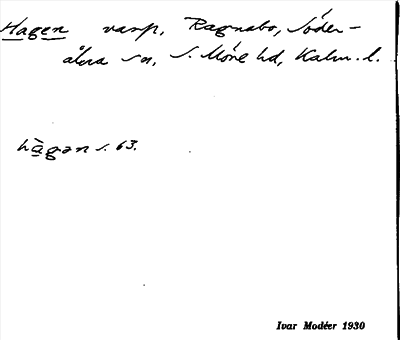 Hagen vassp, Ragnabo, Söder-
åkra sn, S. Möre hd, Kalm. l.
hàgən s. 63.
Ivar Modéer 1930